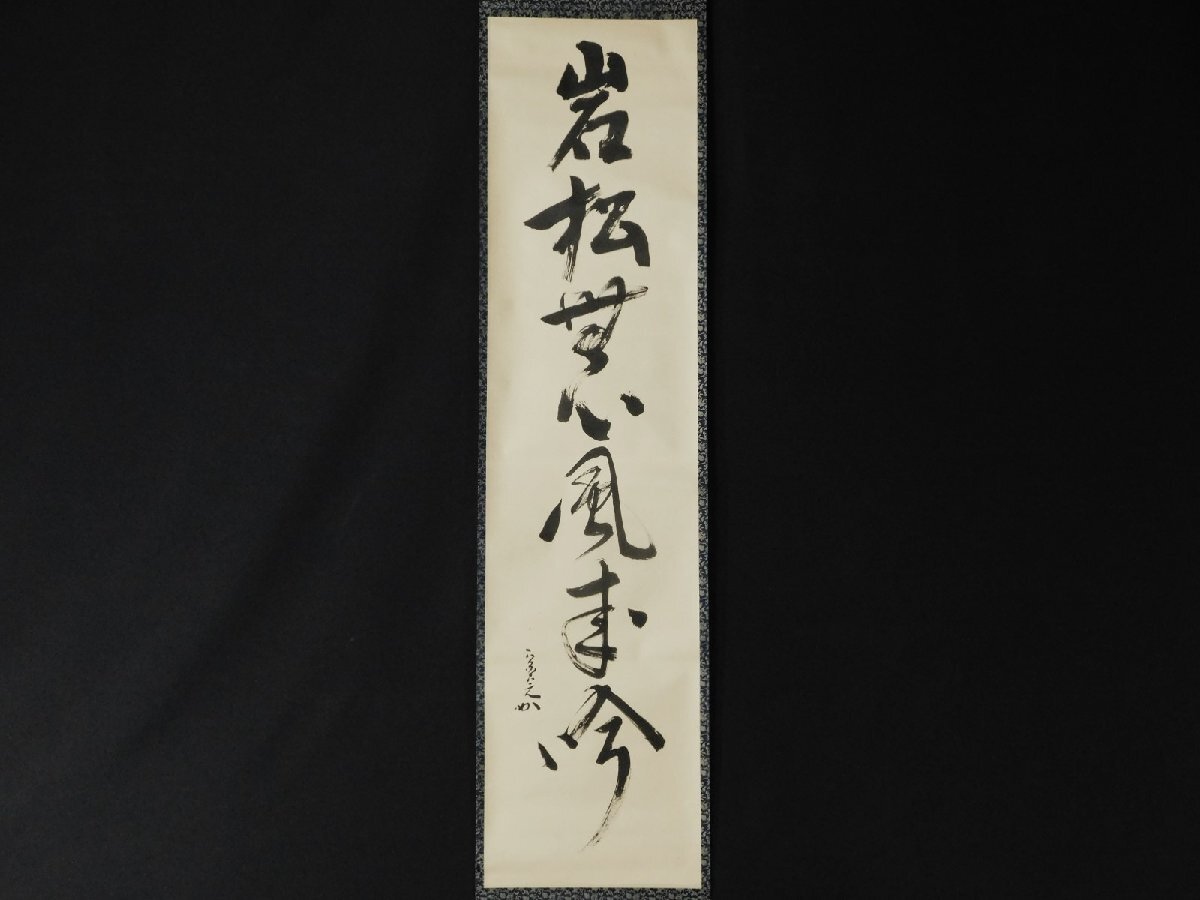 岩松無心風来吟